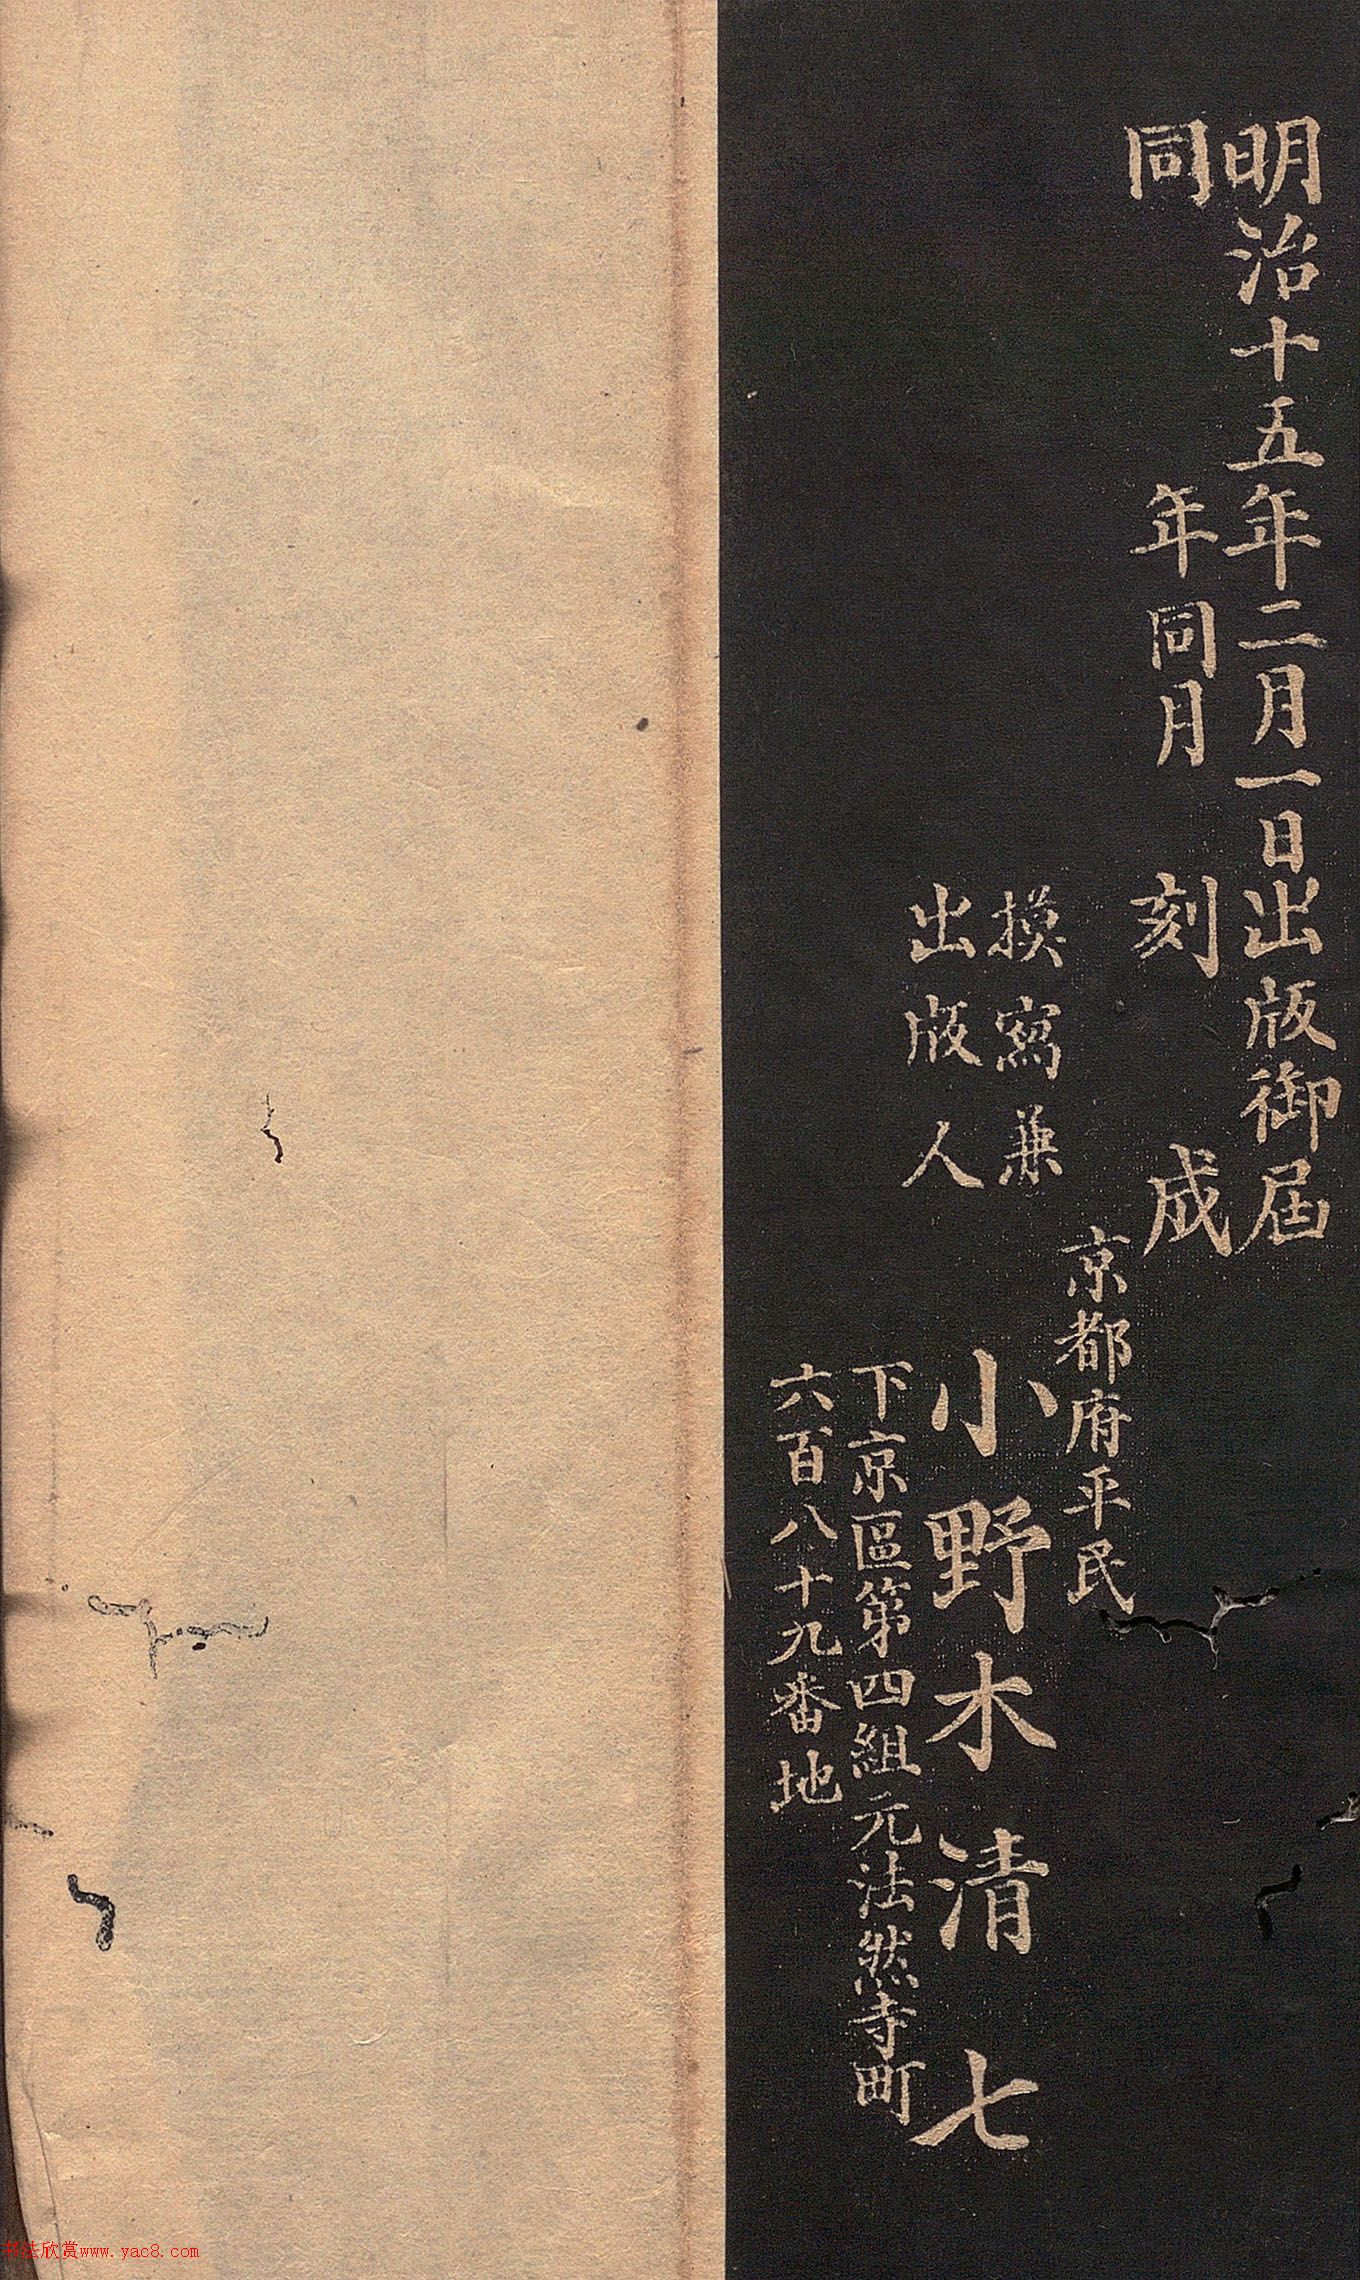 明治十五年二月一日出版御届
同年同月刻成
京都府平民
摸寫兼
出版人
小野木清七
下京區第四組元法然寺町
六百八十九番地
书法欣赏www.yac8.com